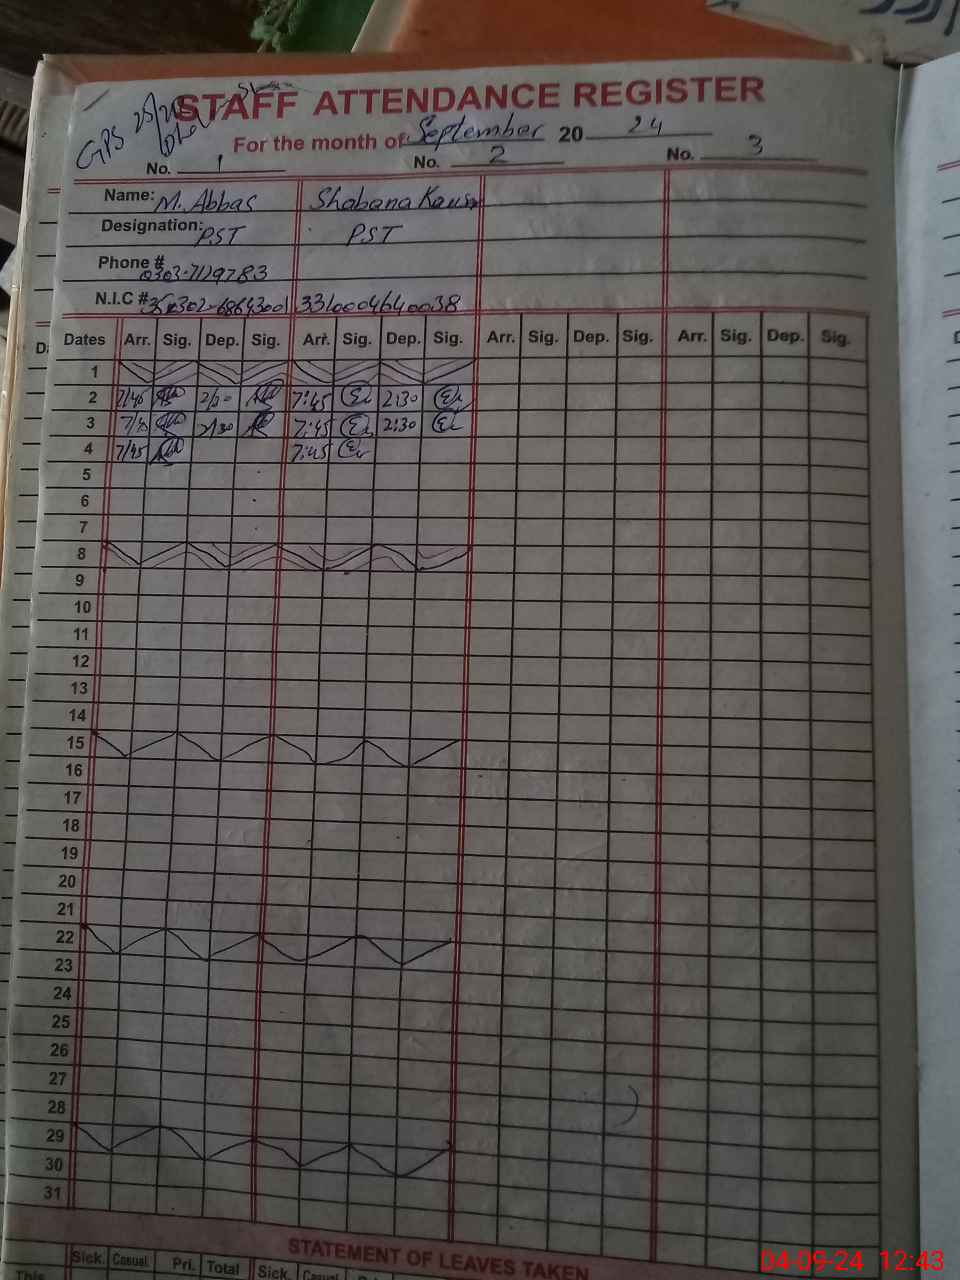 GPS 25/20
STAFF ATTENDANCE REGISTER
For the month of September 20 24
No. 1 No. 2 No. 3
Name: M. Abbas Shabana Kausr
Designation: PST PST
Phone # 0303-7129783
N.I.C # 3310004640038
Dates Arr. Sig. Dep. Sig. Arr. Sig. Dep. Sig. Arr. Sig. Dep. Sig. Arr. Sig. Dep. Sig.
1
2 7/45 2/30 7:45 2:30
3 7/45 2/30 7:45 2:30
4 7/45 7:45
5
6
7
8
9
10
11
12
13
14
15
16
17
18
19
20
21
22
23
24
25
26
27
28
29
30
31
STATEMENT OF LEAVES TAKEN
Sick. Casual Pri. Total Sick. Casual
This
04-09-24 12:43